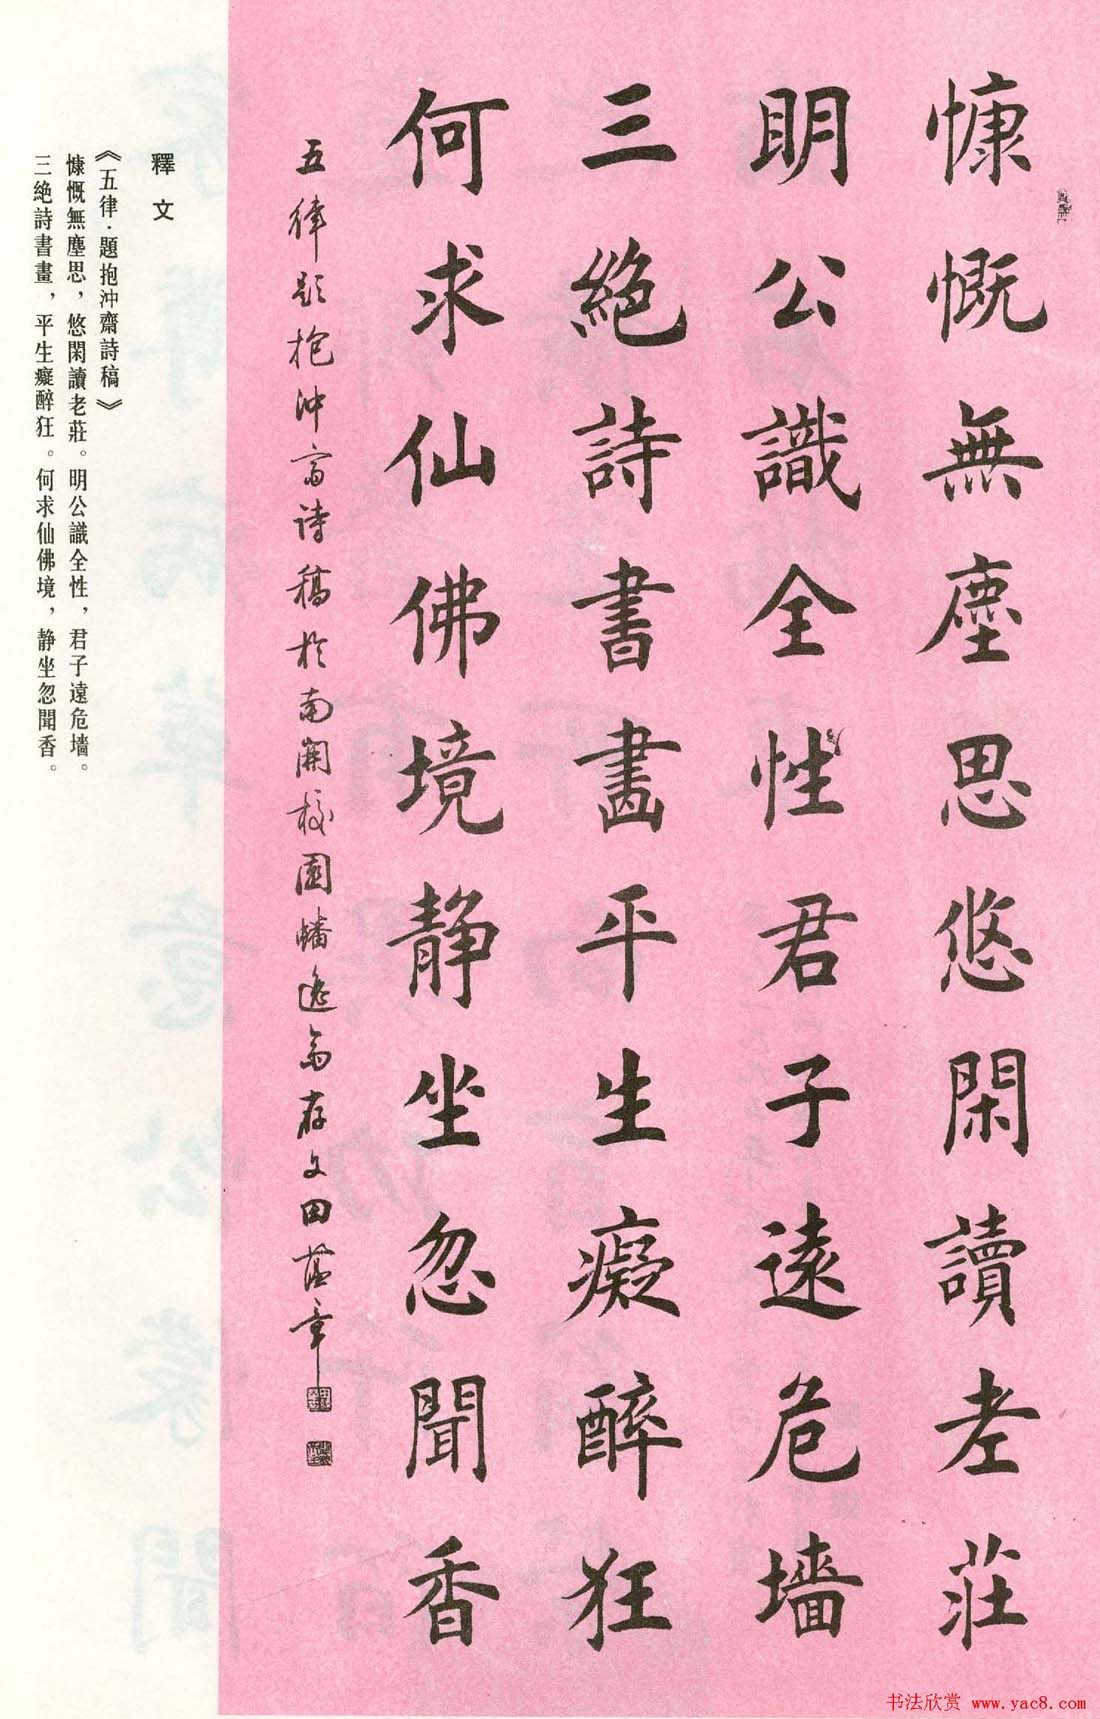 慷慨無塵思悠閑讀老莊
明公識全性君子遠危墻
三絕詩書畫平生癡醉狂
何求仙佛境静坐忽聞香
五律題抱沖齋詩稿於南開校園蟠逸齋存文田蘊章
釋文
《五律·題抱沖齋詩稿》
慷慨無塵思，悠閑讀老莊。明公識全性，君子遠危墻。
三絕詩書畫，平生癡醉狂。何求仙佛境，静坐忽聞香。
书法欣赏 www.yac8.com